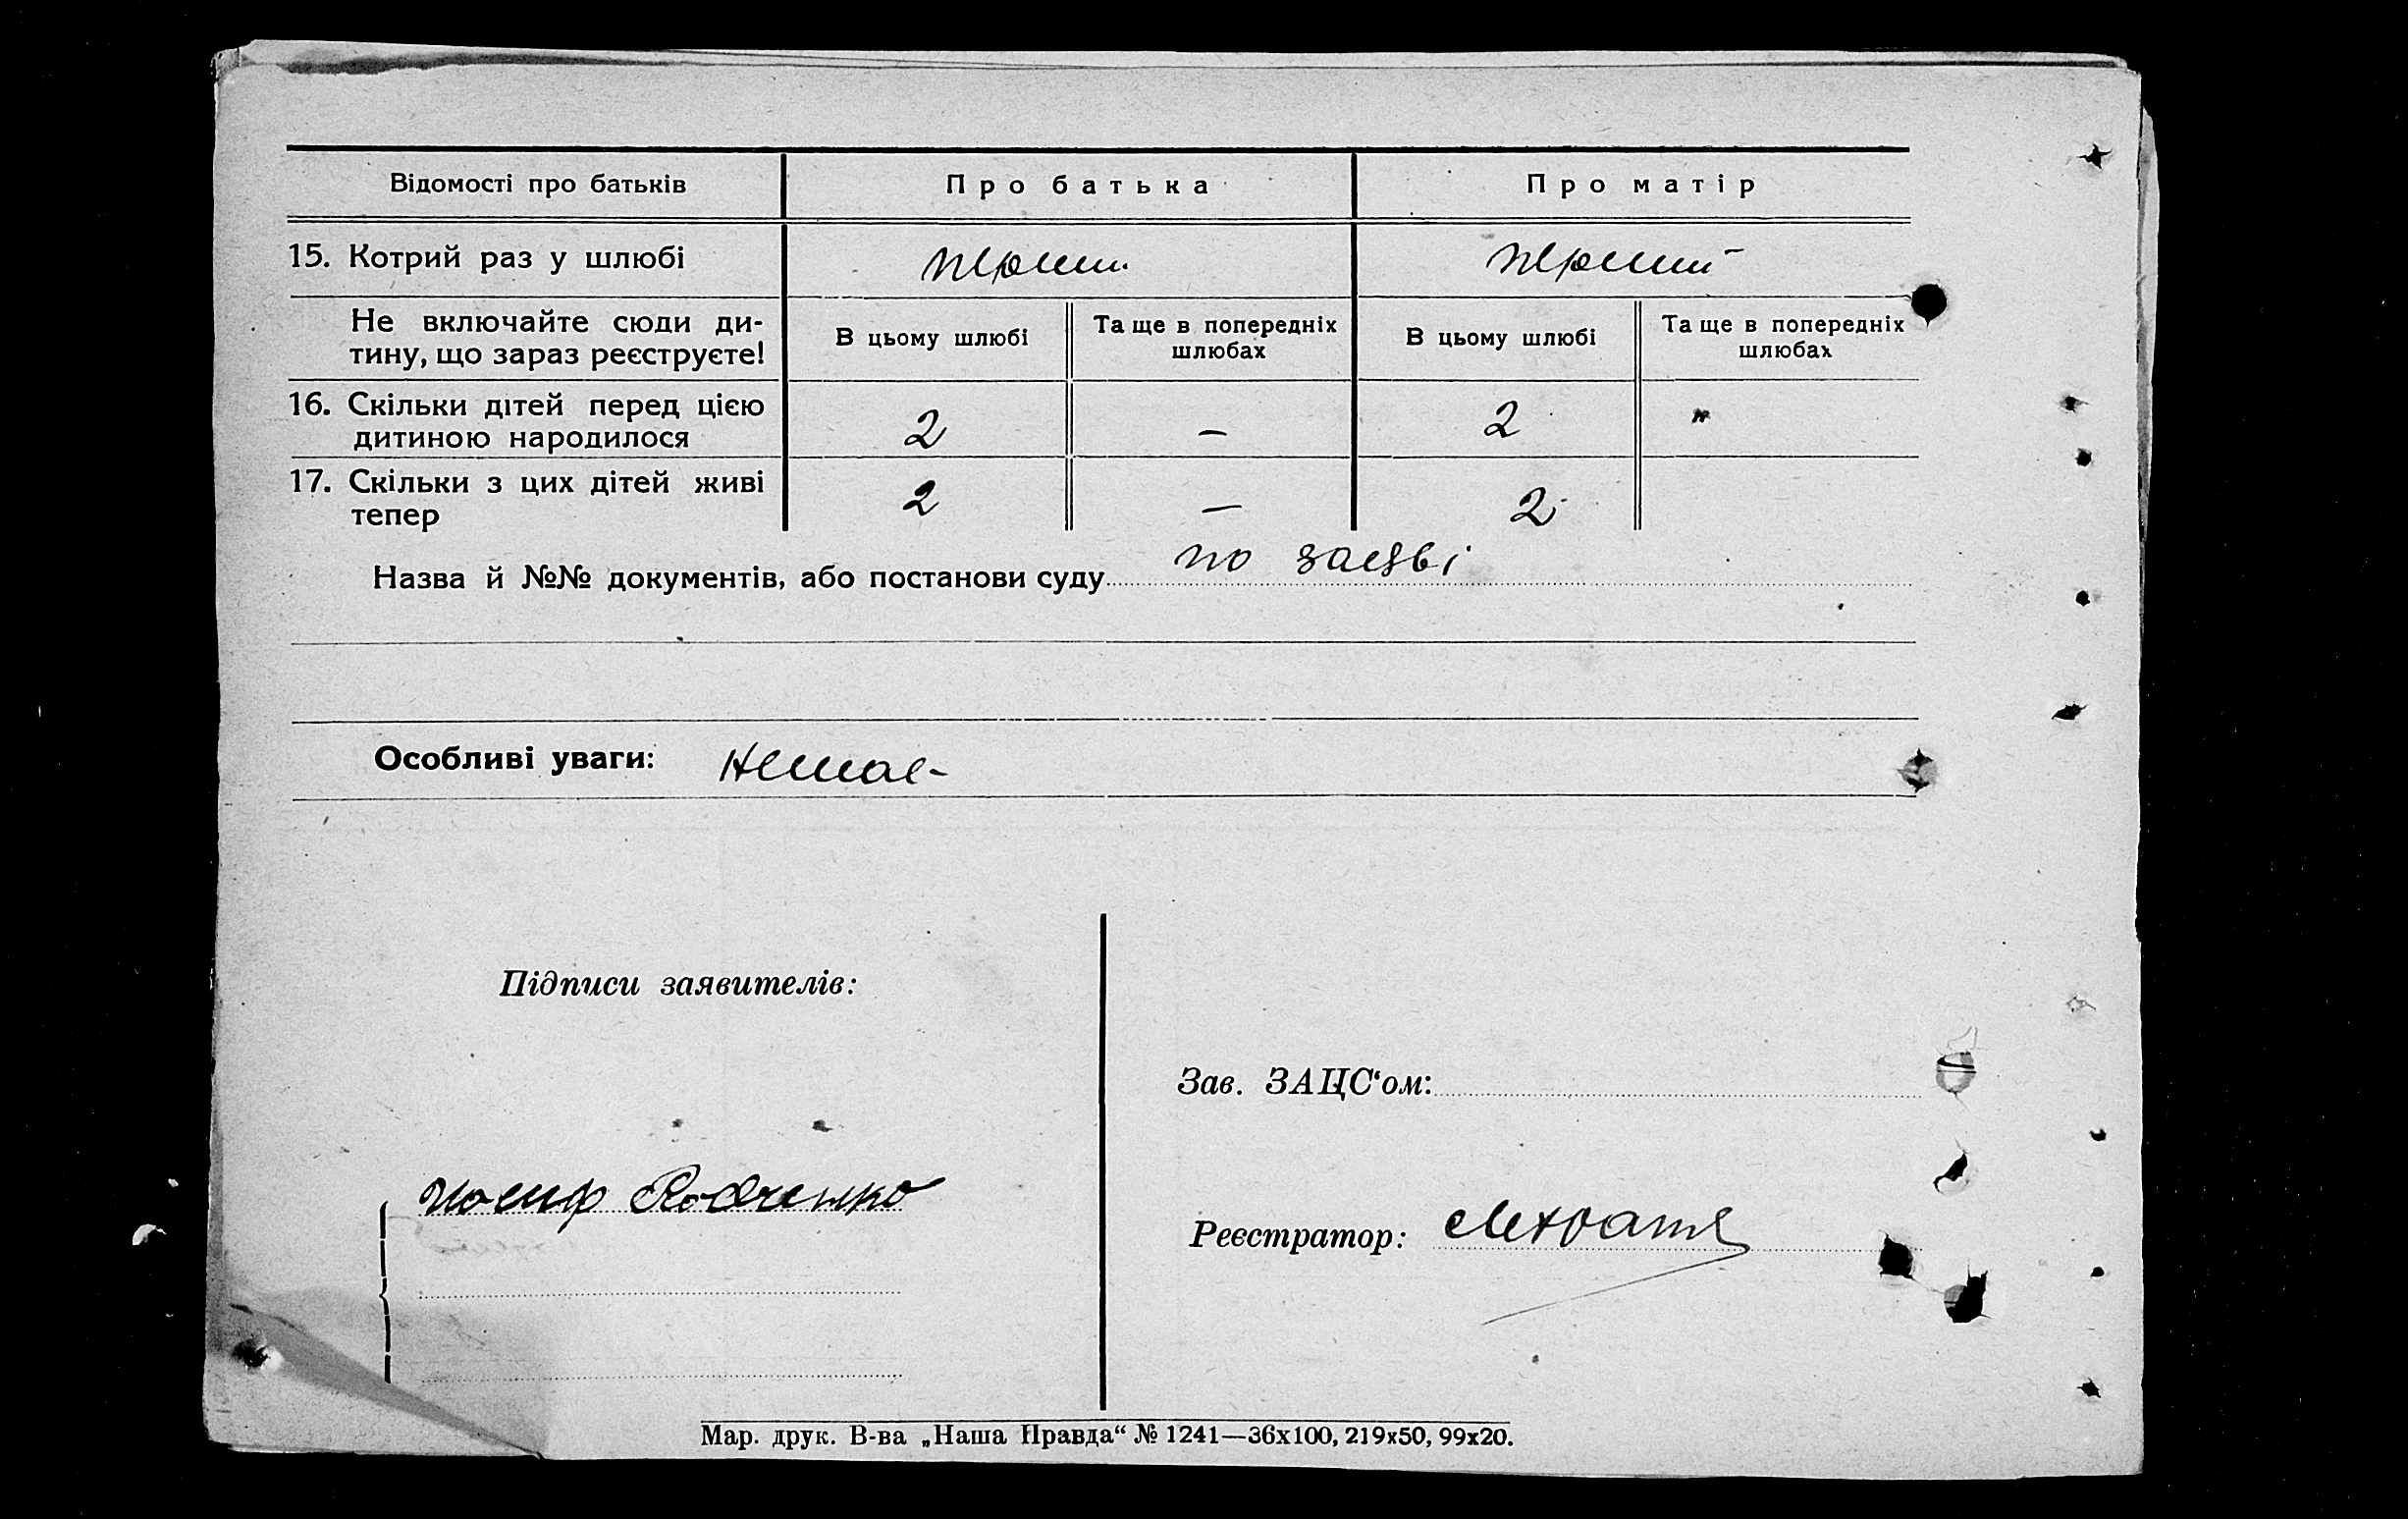 Відомості про батьків Про батька Про матір
15. Котрий раз у шлюбі перши перший
Не включайте сюди ди- В цьому шлюбі Та ще в попередніх В цьому шлюбі Та ще в попередніх
тину, що зараз реєструєте! шлюбах шлюбах
16. Скільки дітей перед цією
дитиною народилося 2 — 2 "
17. Скільки з цих дітей живі 2 — 2
тепер
Назва й №№ документів, або постанови суду по заяві
Особливі уваги: немає-
Підписи заявителів:
Зав. ЗАЦС‘ом:
Иосиф Родченко
Реєстратор:
Мар. друк. В-ва „Наша Правда“ № 1241—36х100, 219х50, 99х20.